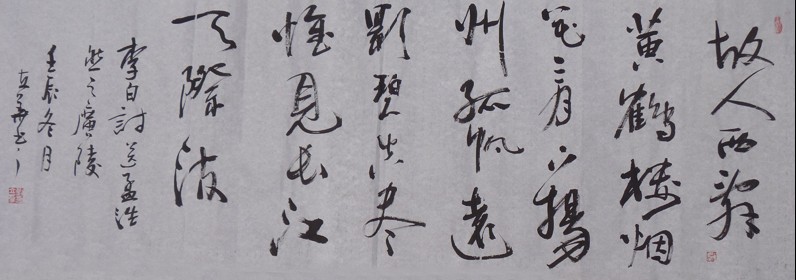 故人西辭
黄鶴楼烟
花三月下揚
州孤帆遠
影碧空尽
惟見长江
天際流
李白詩送孟浩
然之廣陵
壬辰冬月